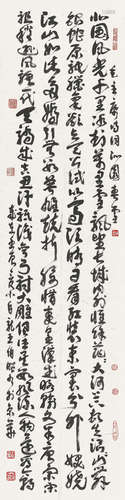 毛主席诗词沁园春雪
北国风光千里冰封万里雪飘望长城内外惟余莽莽大河上下顿失滔滔山舞
银蛇原驰蜡象欲与天公试比高须晴日看红装素裹分外妖娆
江山如此多娇引无数英雄竞折腰惜秦皇汉武略输文采唐宗宋
祖稍逊风骚一代天骄成吉思汗只识弯弓射大雕俱往矣数风流人物还看今朝